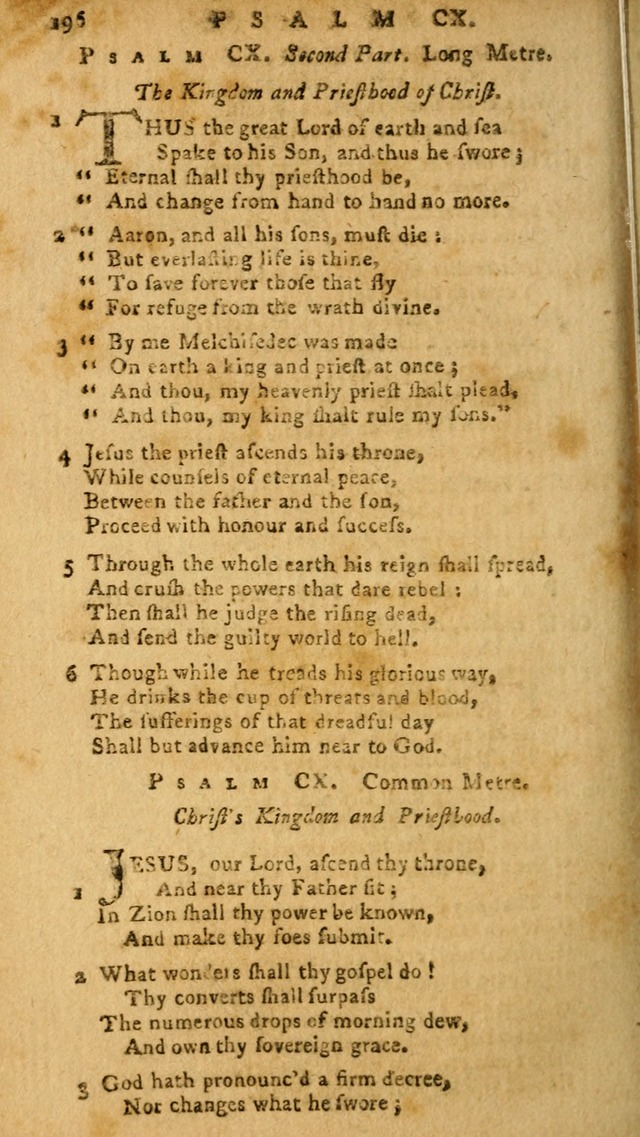 196 PSALM CX.
PSALM CX. Second Part. Long Metre.
The Kingdom and Prieſthood of Chriſt.
1 THUS the great Lord of earth and ſea
Spake to his Son, and thus he ſwore;
“ Eternal ſhall thy prieſthood be,
“ And change from hand to hand no more.
2 “ Aaron, and all his ſons, muſt die:
“ But everlaſting life is thine,
“ To ſave forever thoſe that fly
“ For refuge from the wrath divine.
3 “ By me Melchiſedec was made
“ On earth a king and prieſt at once;
“ And thou, my heavenly prieſt ſhalt plead,
“ And thou, my king ſhalt rule my ſons.”
4 Jeſus the prieſt aſcends his throne,
While counſels of eternal peace,
Between the father and the ſon,
Proceed with honour and ſucceſs.
5 Through the whole earth his reign ſhall ſpread,
And cruſh the powers that dare rebel:
Then ſhall he judge the riſing dead,
And ſend the guilty world to hell.
6 Though while he treads his glorious way,
He drinks the cup of threats and blood,
The ſufferings of that dreadful day
Shall but advance him near to God.
PSALM CX. Common Metre.
Chriſt's Kingdom and Prieſthood.
1 JESUS, our Lord, aſcend thy throne,
And near thy Father ſit;
In Zion ſhall thy power be known,
And make thy foes ſubmit.
2 What wonders ſhall thy goſpel do!
Thy converts ſhall ſurpaſs
The numerous drops of morning dew,
And own thy ſovereign grace.
3 God hath pronounc'd a firm decree,
Nor changes what he ſwore;